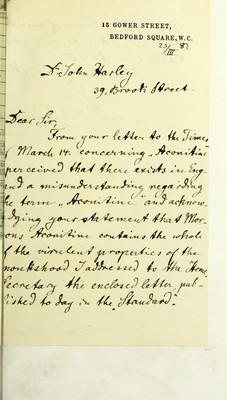 15 GOWER STREET,
BEDFORD SQUARE, W.C.
23/III 82
Dr John Harley
39, Brook Street
Dear Sir,
From your letter to the Times
of March 14. concerning "Aconitine"
perceived that there exists in Eng-
and a misunderstanding regarding
he term "Aconitine" and acknow-
dging your statement that Mor-
ons Aconitine contains the whole
f the virulent properties of the
monkshood I addressed to the Home
Secretary the enclosed letter, pub-
lished to day in the "Standard".